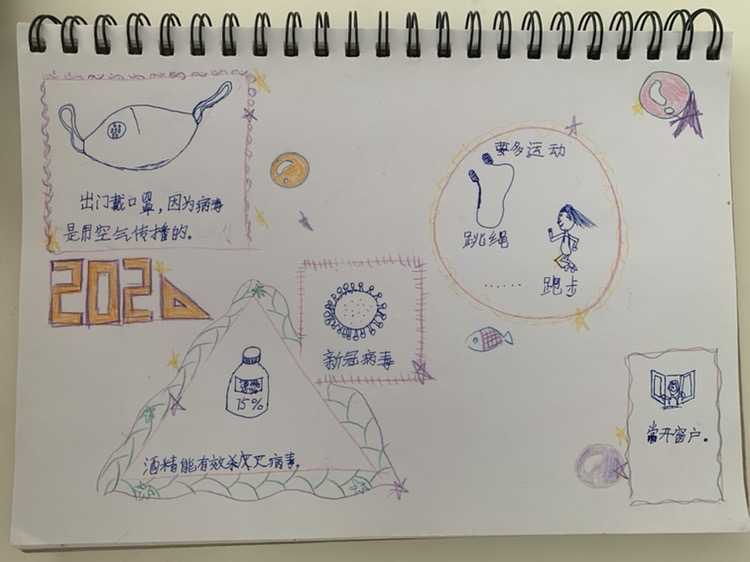 出门戴口罩，因为病毒
是用空气传播的。
要多运动
跳绳
……
跑步
202
新冠病毒
75%
酒精能有效杀灭病毒。
常开窗户。